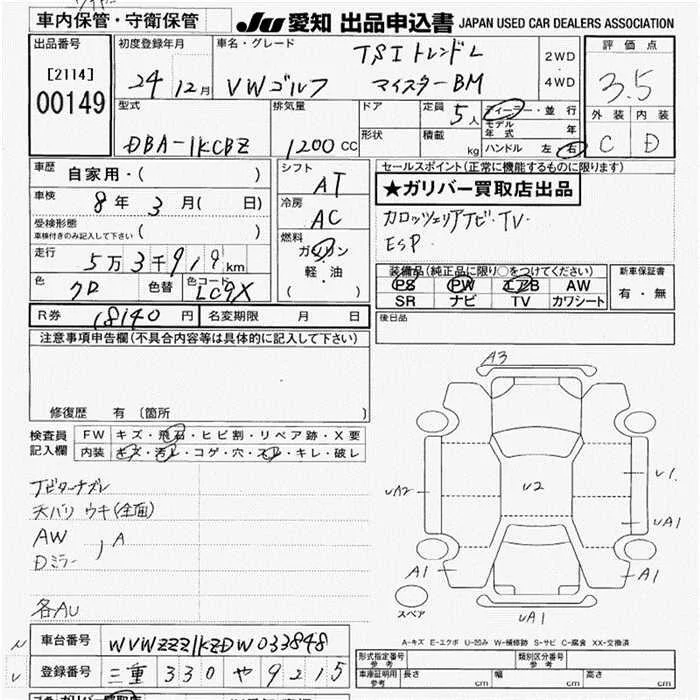 車内保管・守衛保管
JU 愛知 出品申込書 JAPAN USED CAR DEALERS ASSOCIATION
出品番号
[2114]
00149
初度登録年月
24年12月
車名・グレード
VWゴルフ
TSI トレンドL
マイスターBM
2WD
・
4WD
評価点
3.5
外装 内装
C D
型式
DBA-1KCBZ
排気量
1200 CC
ドア
形状
定員
5人
積載
kg
ディーラー・並行
モデル
年式 年
ハンドル 左 右
車歴
自家用・( )
車検
8年 3月( 日)
受検形態
車検付きのみ記入して下さい ( )
走行
5万3千919km
色
クロ
色替
色コード
LC9X
シフト
AT
冷房
AC
燃料
ガソリン
軽・油
( )
セールスポイント(正常に機能するものに限ります)
★ガリバー買取店出品
カロッツェリアナビ・TV・
ESP
装備品(純正品に限り○をつけてください)
PS PW エアB AW
SR ナビ TV カワシート
新車保証書
有・無
R券 18140 円 名変期限 月 日
後日品
注意事項申告欄(不具合内容等は具体的に記入して下さい)
修復歴 有 〔箇所 〕
検査員
記入欄
FW キズ・飛石・ヒビ割・リペア跡・X要
内装 キズ・汚れ・コゲ・穴・スレ・キレ・破レ
天バリ ウキ(全面)
AW
Dミラー
) A
各AU
A3
UA2
U2
U1
UA1
A1
A1
UA1
スペア
A-キズ E-エクボ U-凹み W-補修跡 S-サビ C-腐食 XX-交換済
車台番号 WVWZZZ1KZDW033848
登録番号 三重 330 や 9215
形式指定番号
参考
類別区分番号
参考
車庫証明用
参考
長さ cm 幅 cm 高さ cm
ガリバー買取店